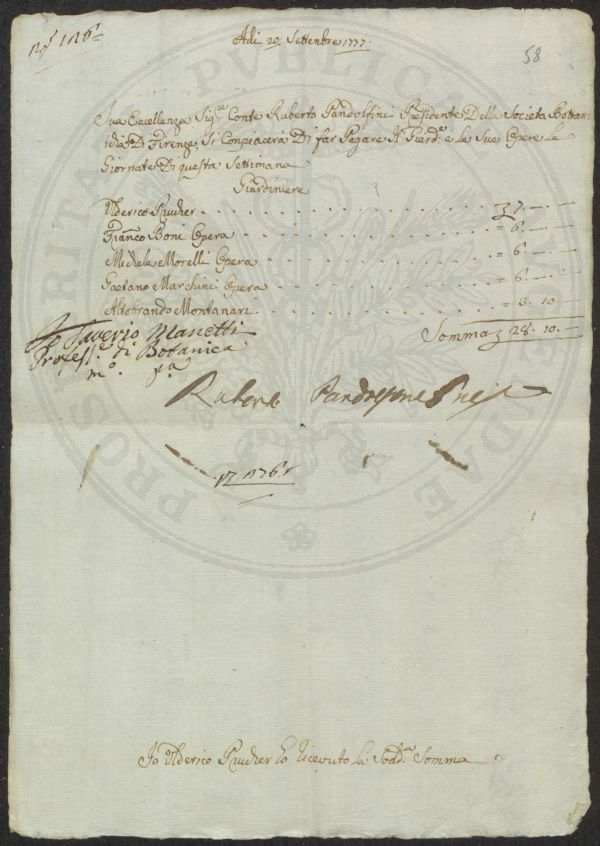 Adi 20. Settembre 1777.
58
Sua Eccellenza Sig.re Conte Ruberto Pandolfini Presidente Della Societa Botta-
nica Di Firenze, Si Conpiacera Di far Pagare Al Giard.e e le Sue Opere le
Giornate Di questa Settimana
Giardiniere
Ulderico Prucher . . . . . . . . . . . 7. —
Franco Boni Opera . . . . . . . . . . = 6. —
Michele Morelli Opera . . . . . . . . . = 6. —
Gaetano Marchini Opera . . . . . . . . = 6. —
Altobrando Montanari . . . . . . . . . = 3. 10 —
Somma 28. 10. —
Saverio Manetti
Profess. di Botanica
m.o p.a
Ruberto Pandolfini Pres
Io Ulderico Prucher ho ricevuto la Sod.a Somma
PUBLICAE
PROSPERITATI